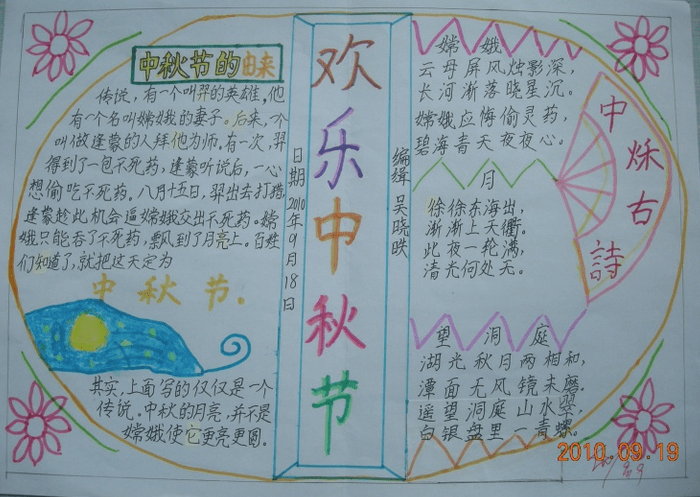 中秋节的由来
传说，有一个叫羿的英雄，他
有一个名叫嫦娥的妻子。后来，一个
叫做逢蒙的人拜他为师，有一次，羿
得到了一包不死药，逢蒙听说后，一心
想偷吃不死药。八月十五日，羿出去打猎，
逢蒙趁此机会逼嫦娥交出不死药。嫦
娥只能吞了不死药，飘风到了月亮上。百姓
们知道了，就把这天定为
中秋节．
其实，上面写的仅仅是一个
传说。中秋的月亮，并不是
嫦娥使它更亮更圆。
日期2010年9月18日
欢乐中秋节
编缉 吴晓昳
嫦娥
云母屏风烛影深，
长河渐落晓星沉。
嫦娥应悔偷灵药，
碧海青天夜夜心。
月
徐徐东海出，
渐渐上天衢。
此夜一轮满，
清光何处无。
望洞庭
湖光秋月两相和，
潭面无风镜未磨，
遥望洞庭山水翠，
白银盘里一青螺。
中秌古詩
2010.09.19